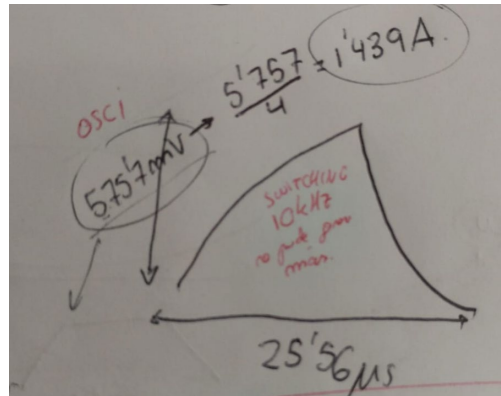 OSCI
575'7 mV → 5'757/4 = 1'439 A.
SWITCHING
10kHz
no pude
más.
25'56 µs